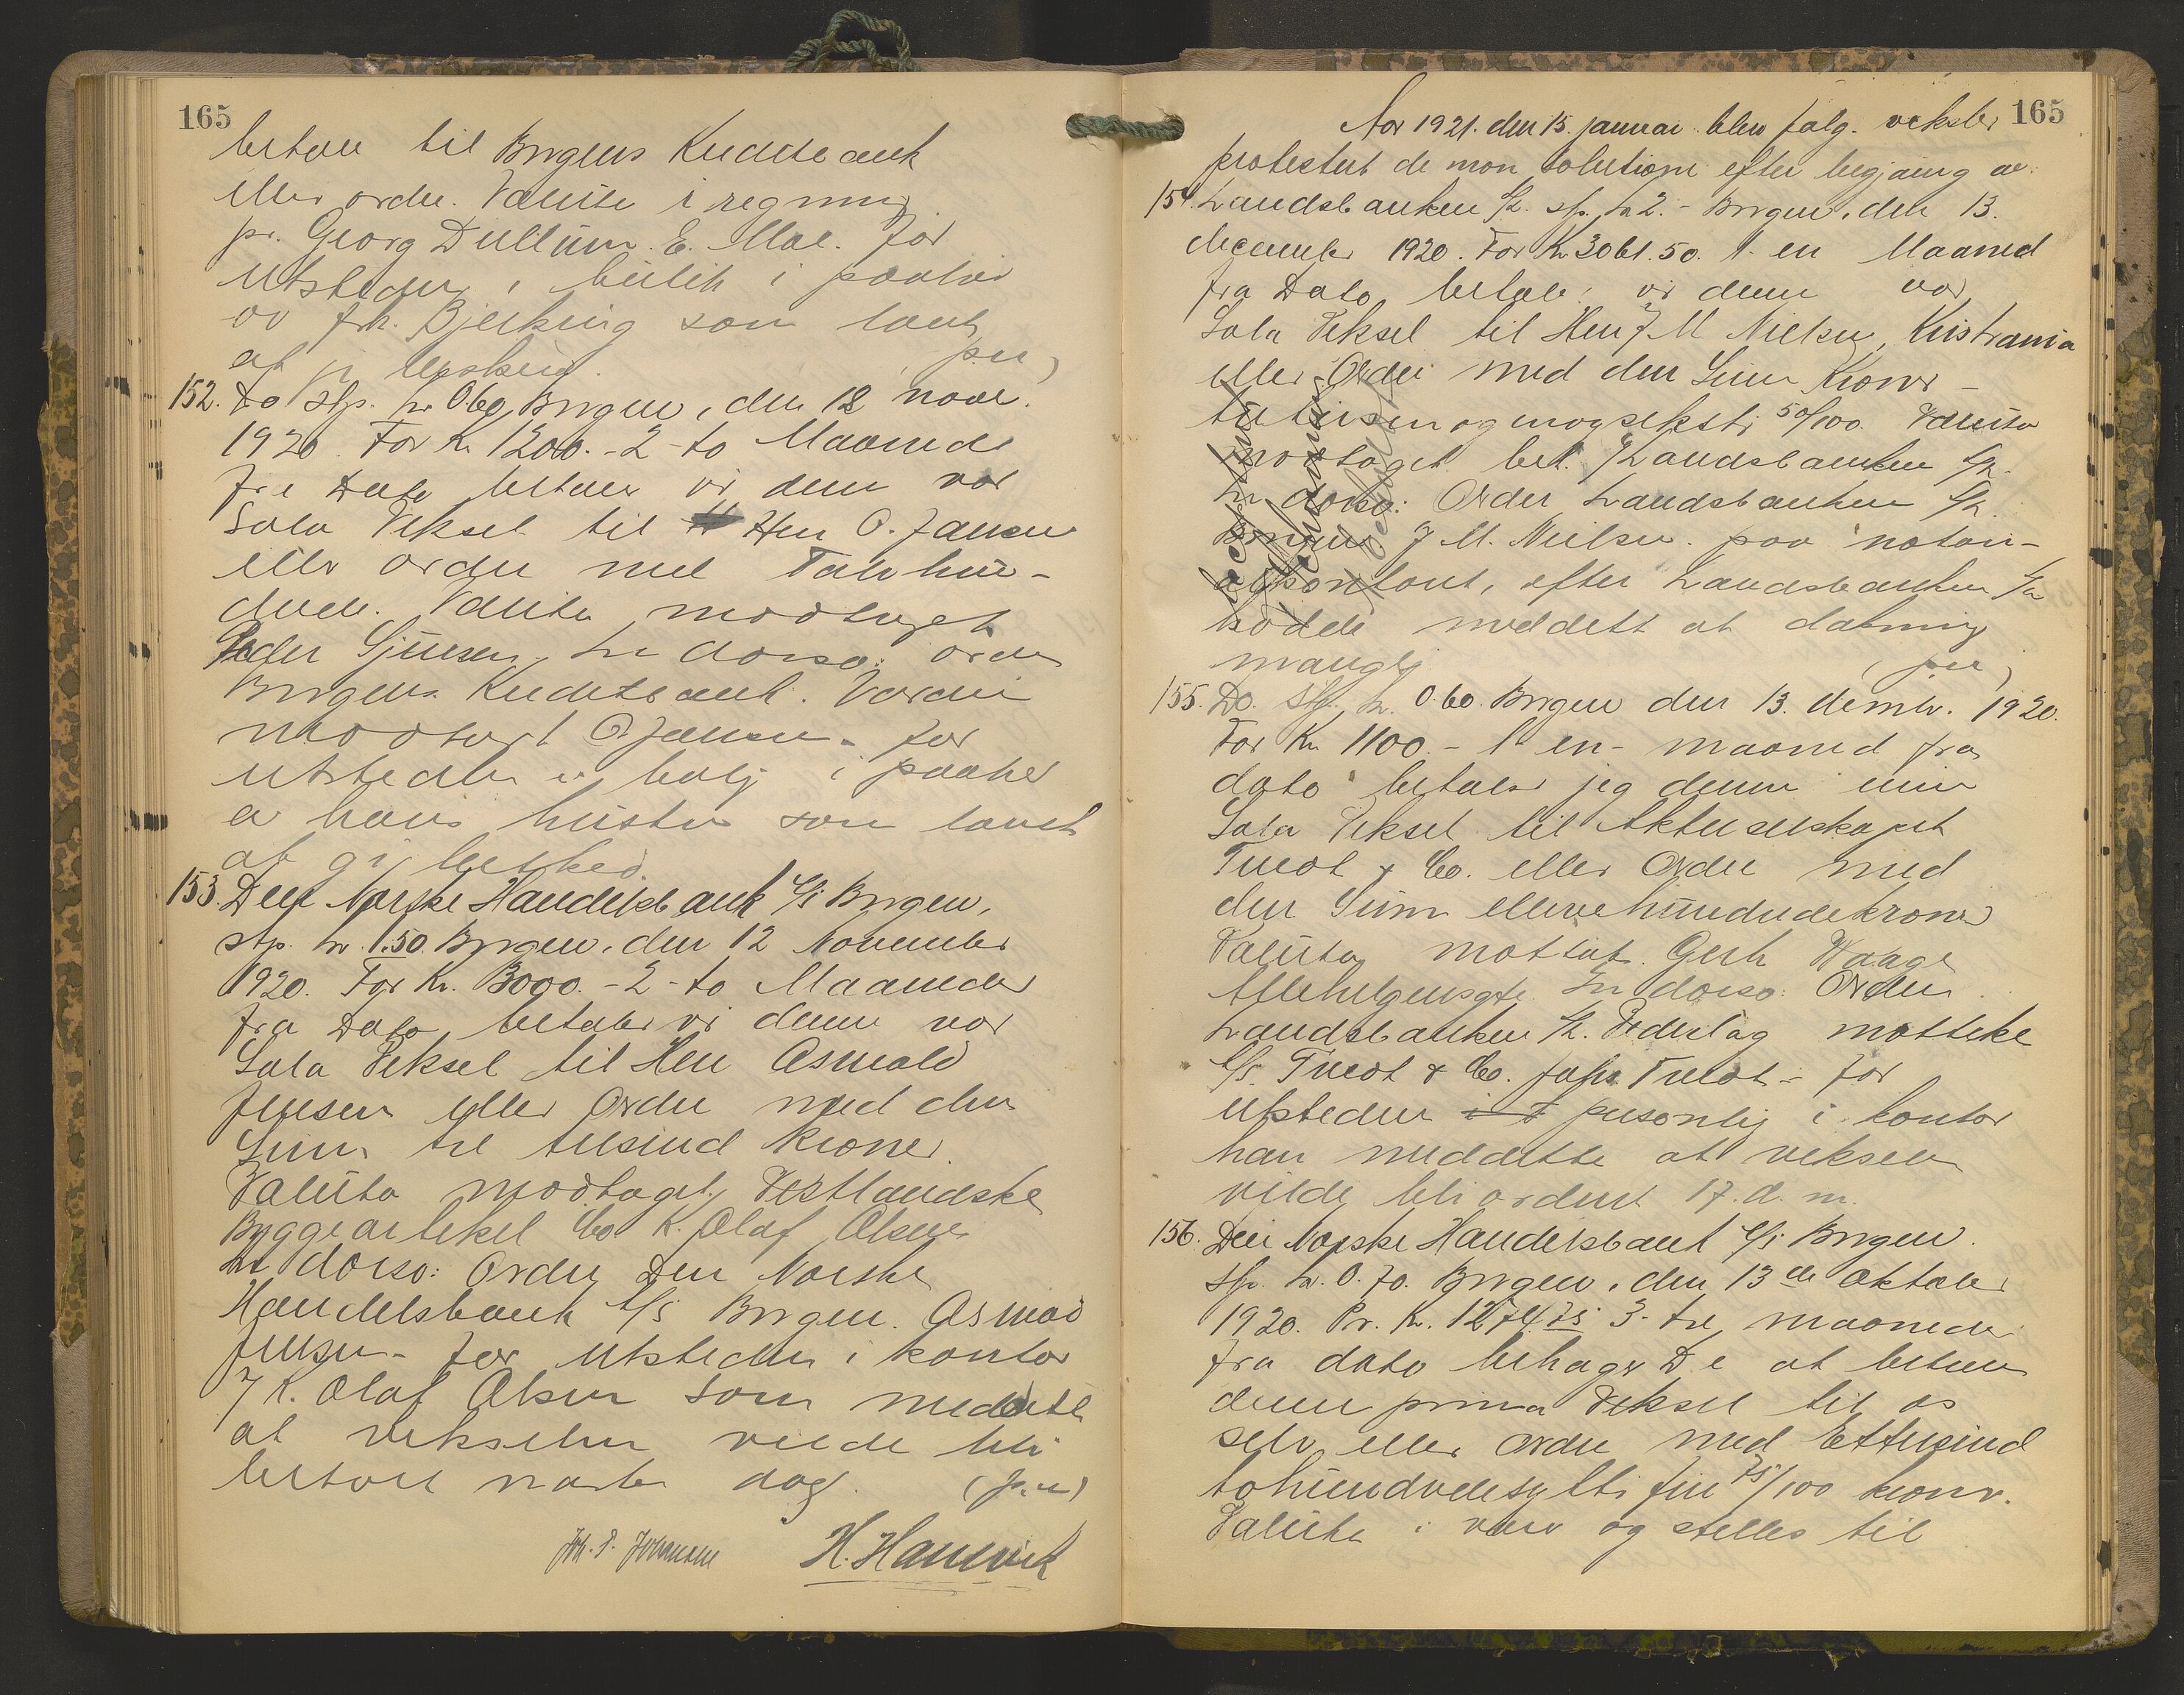 165
betale til Bergens Kreditbank
eller ordre. Valuta i regning
pr. Georg Dullum. E. Moe. For
utstederen i butik i paahør
av frk. Bjerking som lovet
at gi beskjed. (prr)
152. Do stp. kr 0.60 Bergen, den 12 novr.
1920. For Kr. 1200.- 2 - to Maaneder
fra Dato betaler vi denne vor
Sola Veksel til Herr O. Jansen
eller ordre med Tolvhun-
drede. Valuta modtaget
Peder Sjursen. In dorso: ordre
Bergens Kreditbank. Værdi
modtaget O Jansen - for
utstederen i bolig i paahør
av hans hustru som lovet
at gi beskjed.
153. Den Norske Handelsbank A/S Bergen,
stp. kr. 1.50. Bergen, den 12 November
1920. For Kr. 3000. - 2 - to Maaneder
fra Dato betaler vi denne vor
Sola Veksel til Herr Asmald
Jensen eller Ordre med den
Sum tre tusind kroner.
Valuta modtaget, Vestlandske
Byggeartikel Co K. Olaf Olsen
In dorso: Ordre Den Norske
Handelsbank A/S Bergen. Asmald
Jensen - For utstederen i kontor
f K. Olaf Olsen som meddelte
at vekselen vilde bli
betalt næste dag. (prr)
Joh. P. Johansen H. Hamvick
165
Aar 1921. den 15. januar blev følg. veksler
protestert de non solutione efter begjæring av
154. Landsbanken A/S. stp. kr 2.- Bergen, den 13.
december 1920. For Kr. 3061.50. 1 - en Maaned
fra Dato betaler vi denne vor
Sola Veksel til Herr J M Nielsen, Kristiania
eller Ordre med den Sum Kroner -
tretusenogenogseksti 50/100. Valuta
modtaget bet. f/Landsbanken A/S.
In dorso: Order Landsbanken A/S.
Bergen J M. Nielsen. paa notari-
alkontoret, efter Landsbanken A/S
hadde meddelt at dækning
mangler (prr)
155. Do. Stp. kr. 0.60. Bergen den 13. decmbr. 1920.
For Kr 1100.- 1 - en - maaned fra
dato betaler jeg denne min
Sola Veksel til Aktieselskapet
Tveot & Co. eller Ordre med
den Sum ellevehundredekroner
Valuta mottat. Gerh Waage
Allehelgensgt. In dorso: Ordre
Landsbanken A/S. Vederlag mottat
A/S. Tveot & Co. Johs. Tveot - for
utstederen personlig i kontor
han meddelte at vekselen
vilde bli ordnet 17. d. m.
156. Den Norske Handelsbank A/S Bergen.
stp. kr. 0.70. Bergen, den 13de oktober
1920. Pr. Kr. 1274.75 3- tre maaneder
fra dato behager De at betale
denne prima Veksel til os
selv eller ordre med Ettusind
tohundredesyttifire 75/100 kroner.
Valuta i varer og stilles til